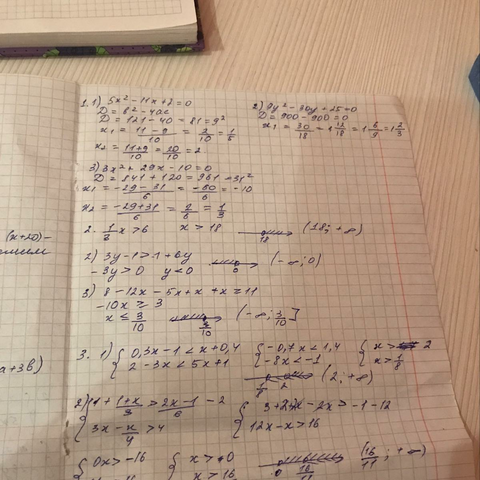 1.1) 5x² - 11x + 2 = 0
D = b² - 4ac
D = 121 - 40 = 81 = 9²
x₁ = (11 - 9)/10 = 2/10 = 1/5
x₂ = (11+9)/10 = 20/10 = 2
2) 9y² - 30y + 25 = 0
D = 900 - 900 = 0
x₁ = 30/18 = 1 12/18 = 1 6/9 = 1 2/3
3) 3x² + 29x - 10 = 0
D = 841 + 120 = 961 = 31²
x₁ = (-29 - 31)/6 = -60/6 = -10
x₂ = (-29+31)/6 = 2/6 = 1/3
2. 1/3 x > 6 x > 18 18 (18; +∞)
2) 3y - 1 > 1 + 6y
-3y > 0 y < 0 0 (-∞; 0)
3) 8 - 12x - 5x + x + x = 11
-10x ≥ 3
x ≤ 3/10 3/10 (-∞; 3/10]
3. 1) { 0,3x - 1 < x + 0,4 { -0,7x < 1,4 { x > 2
2 - 3x < 5x + 1 -8x < -1 x > 1/8
1/8 2 (2; +∞)
2) { (1+x)/3 > (2x - 1)/6 - 2 { 3 + 2x - 2x > -1 - 12
3x - x/4 > 4 12x - x > 16
{ 0x > -16 { x > 0 0 16/11 (16/11; +∞)
x > 16
(x+20) -
a + 3b)